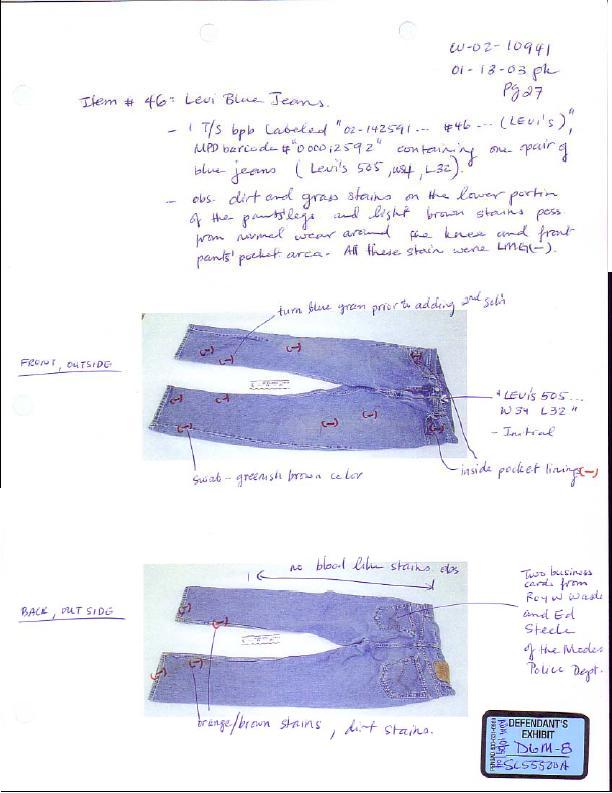 CV-02-10941
01-13-03 pk
Pg 27
Item # 46: Levi Blue Jeans.
- 1 T/S bpb Labeled "02-142591... #46 --- (LEVI's)",
MPD barcode # "000012592" containing one pair of
blue jeans (Levi's 505, W34, L32).
- obs. dirt and grass stains on the lower portion
of the pants' legs and light brown stains poss
from normal wear around the knee and front
pants' pocket area. All these stain were LMG(-).
turn blue green prior to adding 2nd sol'n
FRONT, OUTSIDE
(-)
"LEVI's 505...
W34 L32"
- Initial
swab - greenish brown color
inside pocket lining (-)
no blood like stains obs
BACK, OUTSIDE
Two business
cards from
Roy W Wasde
and Ed
Steele
of the Modes
Police Dept.
orange/brown stains, dirt stains.
DEFENDANT'S
EXHIBIT
D6M-8
SC55520A